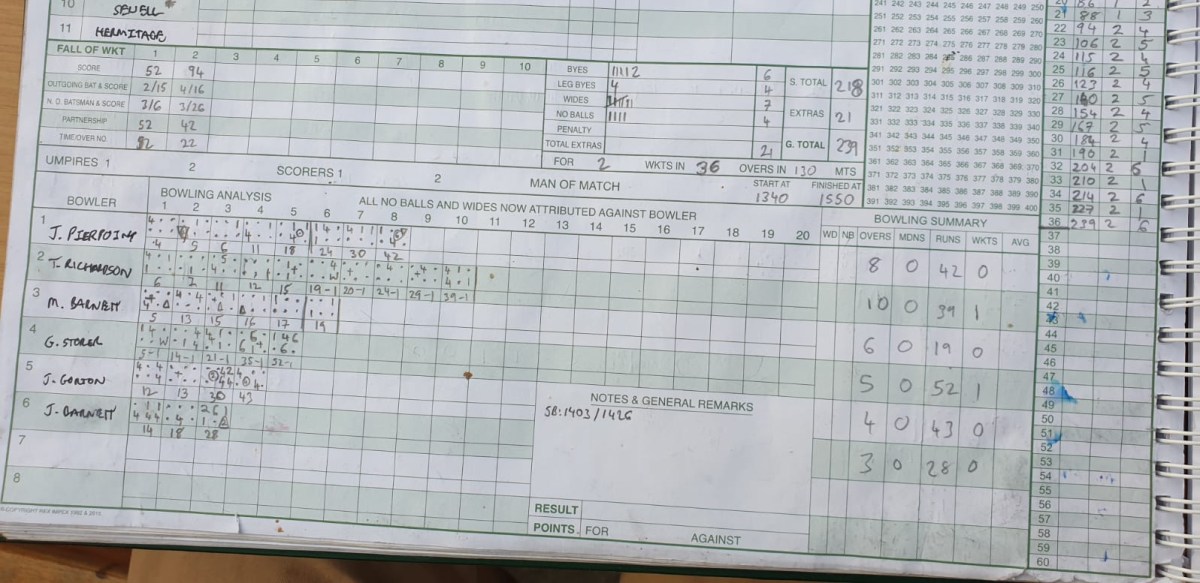 10 SEWELL
11 HERMITAGE
FALL OF WKT 1 2 3 4 5 6 7 8 9 10
SCORE 52 94
OUTGOING BAT & SCORE 2/15 4/16
N. O. BATSMAN & SCORE 3/6 3/26
PARTNERSHIP 52 42
TIME/OVER NO. 12 22
BYES 11112 6
LEG BYES 4 4
WIDES 7
NO BALLS 1111 4
PENALTY
TOTAL EXTRAS 21
S. TOTAL 218
EXTRAS 21
G. TOTAL 239
FOR 2 WKTS IN 36 OVERS IN 130 MTS
START AT 1340 FINISHED AT 1550
241 242 243 244 245 246 247 248 249 250
251 252 253 254 255 256 257 258 259 260
261 262 263 264 265 266 267 268 269 270
271 272 273 274 275 276 277 278 279 280
281 282 283 284 285 286 287 288 289 290
291 292 293 294 295 296 297 298 299 300
301 302 303 304 305 306 307 308 309 310
311 312 313 314 315 316 317 318 319 320
321 322 323 324 325 326 327 328 329 330
331 332 333 334 335 336 337 338 339 340
341 342 343 344 345 346 347 348 349 350
351 352 353 354 355 356 357 358 359 360
361 362 363 364 365 366 367 368 369 370
371 372 373 374 375 376 377 378 379 380
381 382 383 384 385 386 387 388 389 390
391 392 393 394 395 396 397 398 399 400
20 86 1 2
21 88 1 3
22 94 2 4
23 106 2 5
24 115 2 4
25 116 2 5
26 123 2 4
27 140 2 5
28 154 2 4
29 167 2 5
30 184 2 4
31 190 2
32 204 2 5
33 210 2 1
34 214 2 6
35 227 2 1
36 239 2 6
37
38
39
40
41
42
43
44
45
46
47
48
49
50
51
52
53
54
55
56
57
58
59
60
UMPIRES 1 2 SCORERS 1 2 MAN OF MATCH
BOWLER BOWLING ANALYSIS ALL NO BALLS AND WIDES NOW ATTRIBUTED AGAINST BOWLER BOWLING SUMMARY
1 2 3 4 5 6 7 8 9 10 11 12 13 14 15 16 17 18 19 20 WD NB OVERS MDNS RUNS WKTS AVG
1 J. PIERPOINT 4 5 6 11 18 24 30 42 8 0 42 0
2 T. RICHARDSON 6 7 11 12 15 19-1 20-1 24-1 29-1 39-1 10 0 39 1
3 M. BARNETT 5 13 15 16 17 19 6 0 19 0
4 G. STORER 5-1 14-1 21-1 35-1 52-1 5 0 52 1
5 J. GORTON 12 13 30 43 4 0 43 0
6 J. BARNETT 14 18 28 3 0 28 0
7
8
NOTES & GENERAL REMARKS
SB:1403/1426
RESULT
POINTS. FOR AGAINST